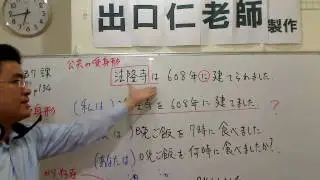 出口仁老師 製作
公共の受身形
37課
p134
法隆寺は608年に建てられました。
身形
(私は)
寺を608年に建てました ?
)晩ご飯を7時に食べました
(あなたは)晩ご飯を何時に食べましたか?